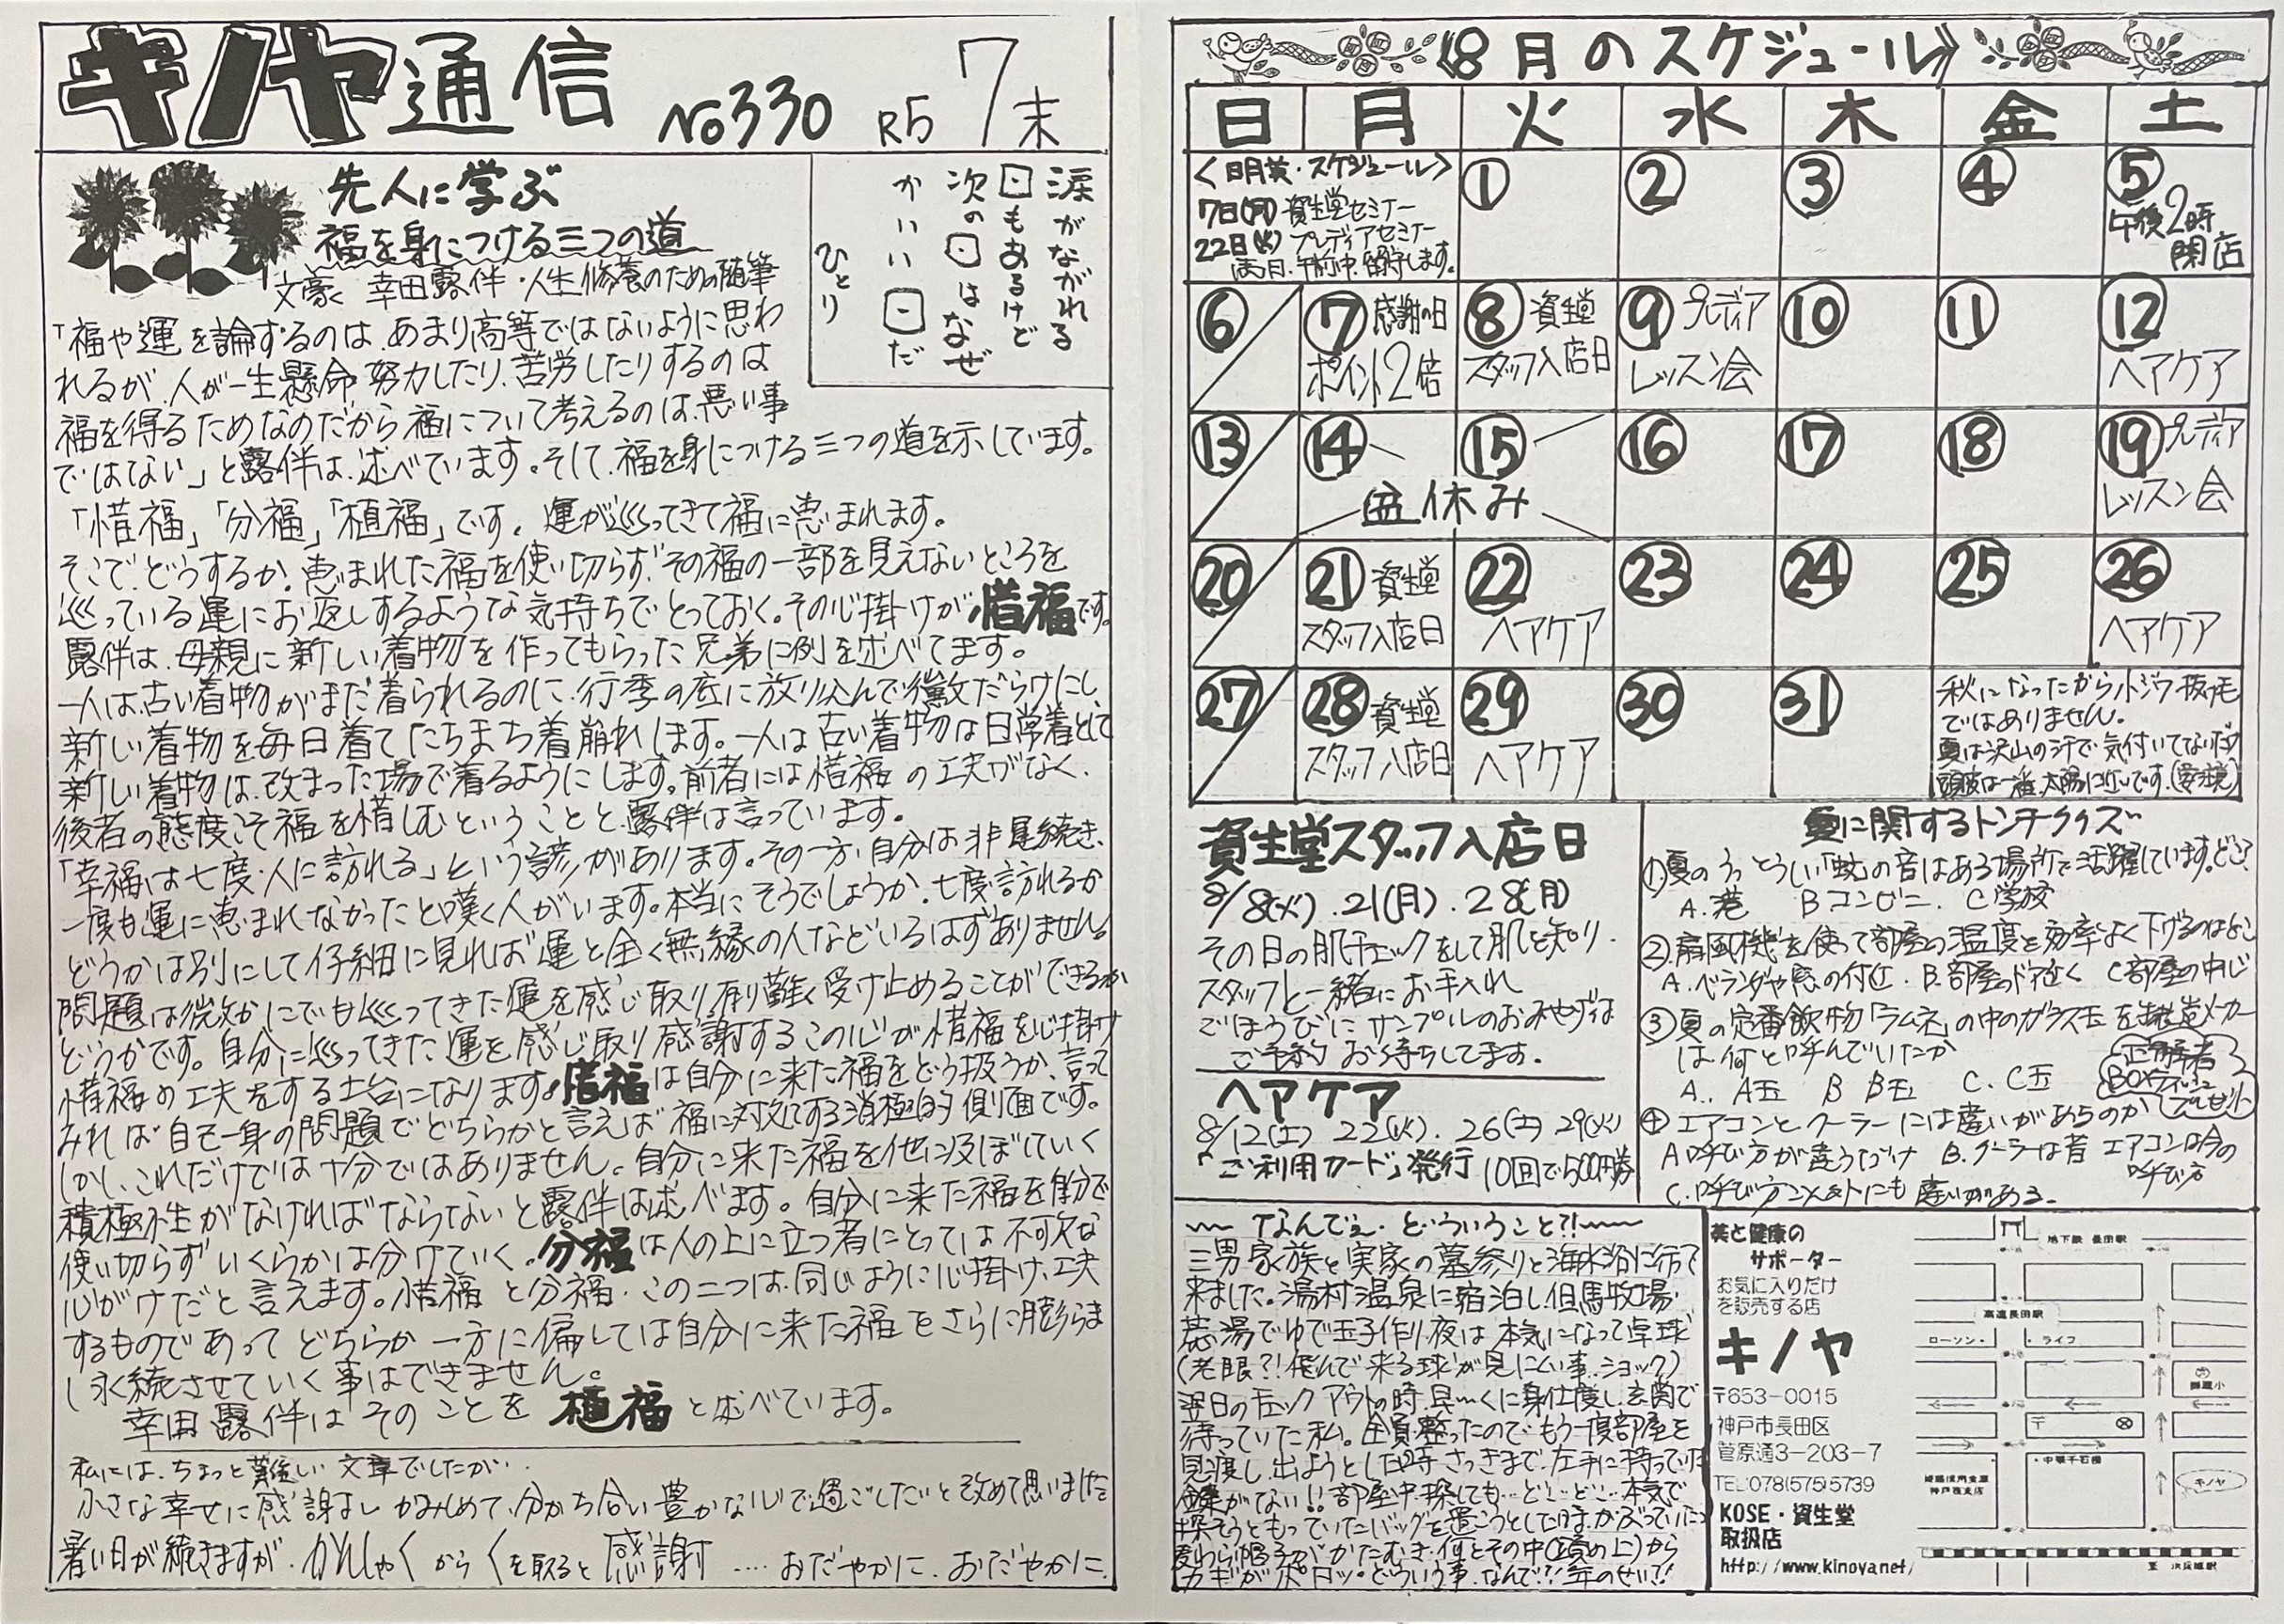 キノヤ通信 No330 R5 7末
先人に学ぶ
福を身につける三つの道
文豪 幸田露伴・人生修養のための随筆
涙がながれる
日もあるけど
次の日はなぜ
かいい日だ
ひとり
「福や運を論ずるのは、あまり高等ではないように思わ
れるが、人が一生懸命努力したり、苦労したりするのは
福を得るためなのだから福について考えるのは、悪い事
ではない」と露伴は、述べています。そして、福を身につける三つの道を示しています。
「惜福」「分福」「植福」です。運が巡ってきて福に恵まれます。
そこで、どうするか。恵まれた福を使い切らず、その福の一部を見えないところを
巡っている運にお返しするような気持ちでとっておく。その心掛けが惜福です。
露伴は、母親に新しい着物を作ってもらった兄弟に例を述べてます。
一人は、古い着物がまだ着られるのに、行李の底に放り込んで黴だらけにし、
新しい着物を毎日着てたちまち着崩れします。一人は古い着物は日常着として
新しい着物は、改まった場で着るようにします。前者には惜福の工夫がなく、
後者の態度こそ福を惜しむということと、露伴は言っています。
「幸福は七度、人に訪れる」という諺があります。その一方、自分は非運続き、
一度も運に恵まれなかったと嘆く人がいます。本当にそうでしょうか。七度、訪れるか
どうかは別にして仔細に見れば運と全く無縁の人などいるはずありません。
問題は微かにでも巡ってきた運を感じ取り、有り難く受け止めることができるか
どうかです。自分に巡ってきた運を感じ取り感謝するこの心が惜福を心掛け
惜福の工夫をする土台になります。惜福は自分に来た福をどう扱うか、言って
みれば自己一身の問題でどちらかと言えば福に対する消極的側面です。
しかし、これだけでは十分ではありません。自分に来た福を他に及ぼしていく
積極性がなければならないと露伴は述べます。自分に来た福を自分で
使い切らずいくらかは分けていく。分福は人の上に立つ者にとっては不可欠な
心がけだと言えます。惜福と分福・この二つは、同じように心掛け、工夫
するものであってどちらか一方に偏しては自分に来た福をさらに膨らま
し永続させていく事はできません。
幸田露伴はそのことを植福と述べています。
私には、ちょっと難しい文章でしたが・・
小さな幸せに感謝をし かみしめて、分かち合い豊かな心で過ごしたいと改めて思いました
暑い日が続きますが、かんしゃく から くを取ると 感謝 ‥‥ おだやかに、おだやかに、
《8月のスケジュール》
日 月 火 水 木 金 土
〈明美・スケジュール〉
7日(月) 資生堂セミナー
22日(火) プレディアセミナー
両日、午前中、留守します。
① ② ③ ④ ⑤
午後2時
閉店
⑥ ⑦感謝の日 ⑧資生堂 ⑨プレディア ⑩ ⑪ ⑫
ポイント2倍 スタッフ入店日 レッスン会 ヘアケア
⑬ ⑭ ⑮ ⑯ ⑰ ⑱ ⑲プレディア
盆休み レッスン会
⑳ ㉑資生堂 ㉒ ㉓ ㉔ ㉕ ㉖
スタッフ入店日 ヘアケア ヘアケア
㉗ ㉘資生堂 ㉙ ㉚ ㉛
スタッフ入店日 ヘアケア
秋になったから小ジワ・抜け毛
ではありません。
夏は沢山の汗で気付いてないだけ
頭皮は一番、太陽に近いです。(要注意)
資生堂スタッフ入店日
8/8(火)．21(月)．28(月)
その日の肌チェックをして肌を知り、
スタッフと一緒にお手入れ
ごほうびにサンプルのおみやげは
ご予約 お待ちしてます。
ヘアケア
8/12(土) 22(火)．26(土) 29(火)
「ご利用カード」発行 10回で500円券
夏に関するトンチクイズ
①夏のうっとうしい「蚊」の音はある場所で活躍しています。どこ？
A.港 B コンビニ． C 学校
②.扇風機を使って部屋の温度を効率よく下げるのはどこ
A.ベランダや窓の付近． B.部屋のドア近く C 部屋の中心
③夏の定番飲物「ラムネ」の中のガラス玉を製造メーカー
は何と呼んでいたか
A．A玉 B B玉 C．C玉
正解者
BOXティッシュ
プレゼント
④エアコンとクーラーには違いがあるのか
A 呼び方が違うだけ B.クーラーは昔 エアコンは今の
呼び方
C．呼び方、コスト共にも違いがある．
なんでぇ． どういうこと?!
三男家族と実家の墓参りと海水浴に行って
来ました。湯村温泉に宿泊し但馬牧場・
荒湯でゆで玉子作り、夜は本気になって卓球
(老眼?!飛んで来る球が見にくい事、ショック)
翌日のチェックアウトの時、早々に身仕度し、玄関で
待っていた私。全員、整ったので、もう一度部屋を
見渡し、出ようとした時、さっきまで、左手に持っていた
鍵がない!!部屋中、探しても…ど…ど…本気で
探そうともっていたバッグを置こうとした時、かぶっていた
麦わら帽子がかたむき、何とその中(頭の上)から
カギがポロッ。どういう事、なんで?!年のせい?!
美と健康の
サポーター
お気に入りだけ
を販売する店
キノヤ
〒653-0015
神戸市長田区
菅原通3-203-7
TEL 078(575)5739
KOSE・資生堂
取扱店
http://www.kinoya.net/
地下鉄 長田駅
高速長田駅
ローソン・ ・ライフ
〒
・中華千石楼
神戸西支店
キノヤ
至 JR兵庫駅